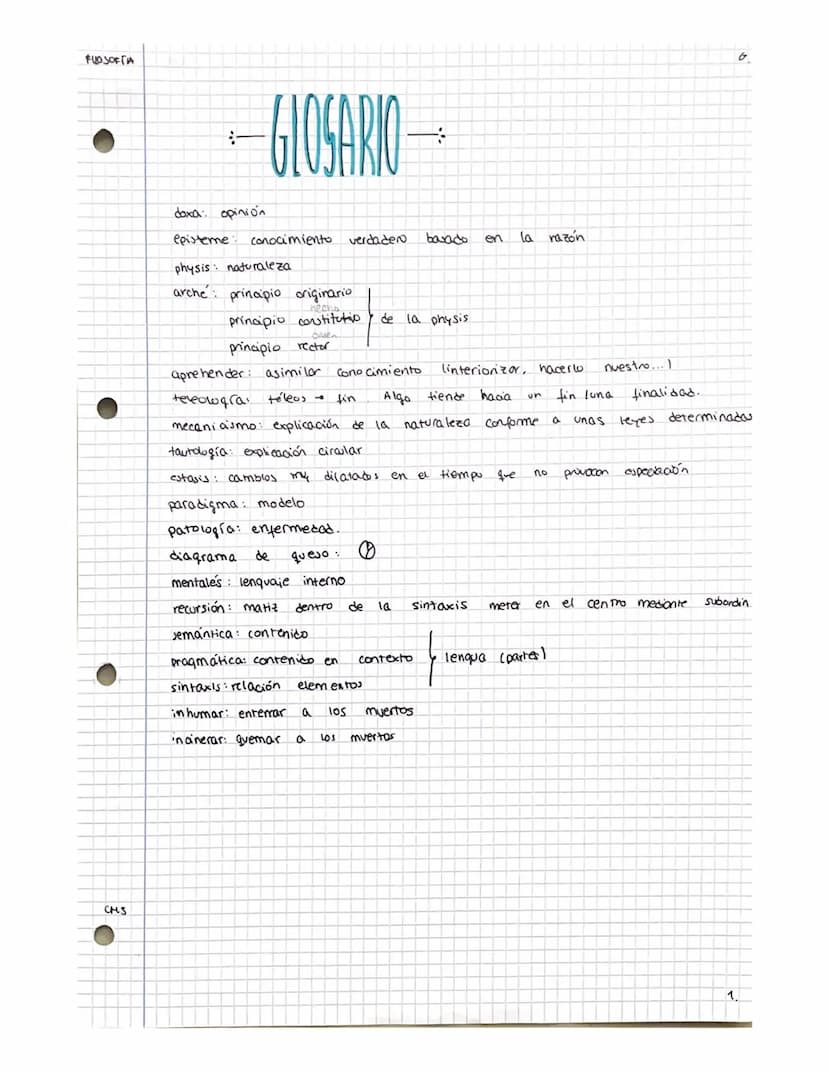 FILOSOFÍA
G.
GLOSARIO
doxa: opinión
episteme: conocimiento verdadero basado en la razón
physis: naturaleza
arché: principio originario
hecho
principio constitutio de la physis
principio rector
aprehender: asimilar conocimiento (interiorizar, hacerlo nuestro...)
teleología: téleos → fin. Algo tiende hacia un fin (una finalidad.
mecanicismo: explicación de la naturaleza conforme a unas leyes determinadas
tautología: explicación circular
estasis: cambios muy dilatados en el tiempo que no provocan especiación
paradigma: modelo
patología: enfermedad.
diagrama de queso:
mentalés: lenguaje interno
recursión: matiz dentro de la sintaxis meter en el centro mediante subordin
semántica: contenido
pragmática: contenido en contexto lengua (partes)
sintaxis: relación elementos
inhumar: enterrar a los muertos
incinerar: quemar a los muertos
CM5
1.